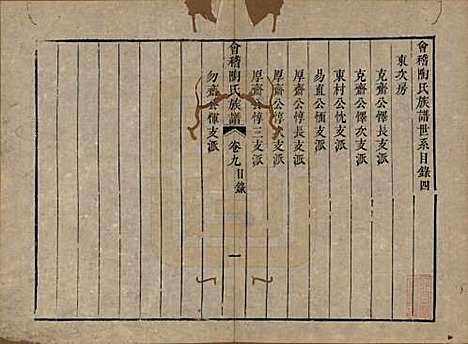 會稽陶氏族譜世系目錄四
東次房
克齋公懌長支派
克齋公懌次支派
東村公忱支派
易直公愐支派
厚齋公惇長支派
厚齋公惇次支派
厚齋公惇三支派
勿齋公惲支派
會稽陶氏族譜
卷九目錄
一